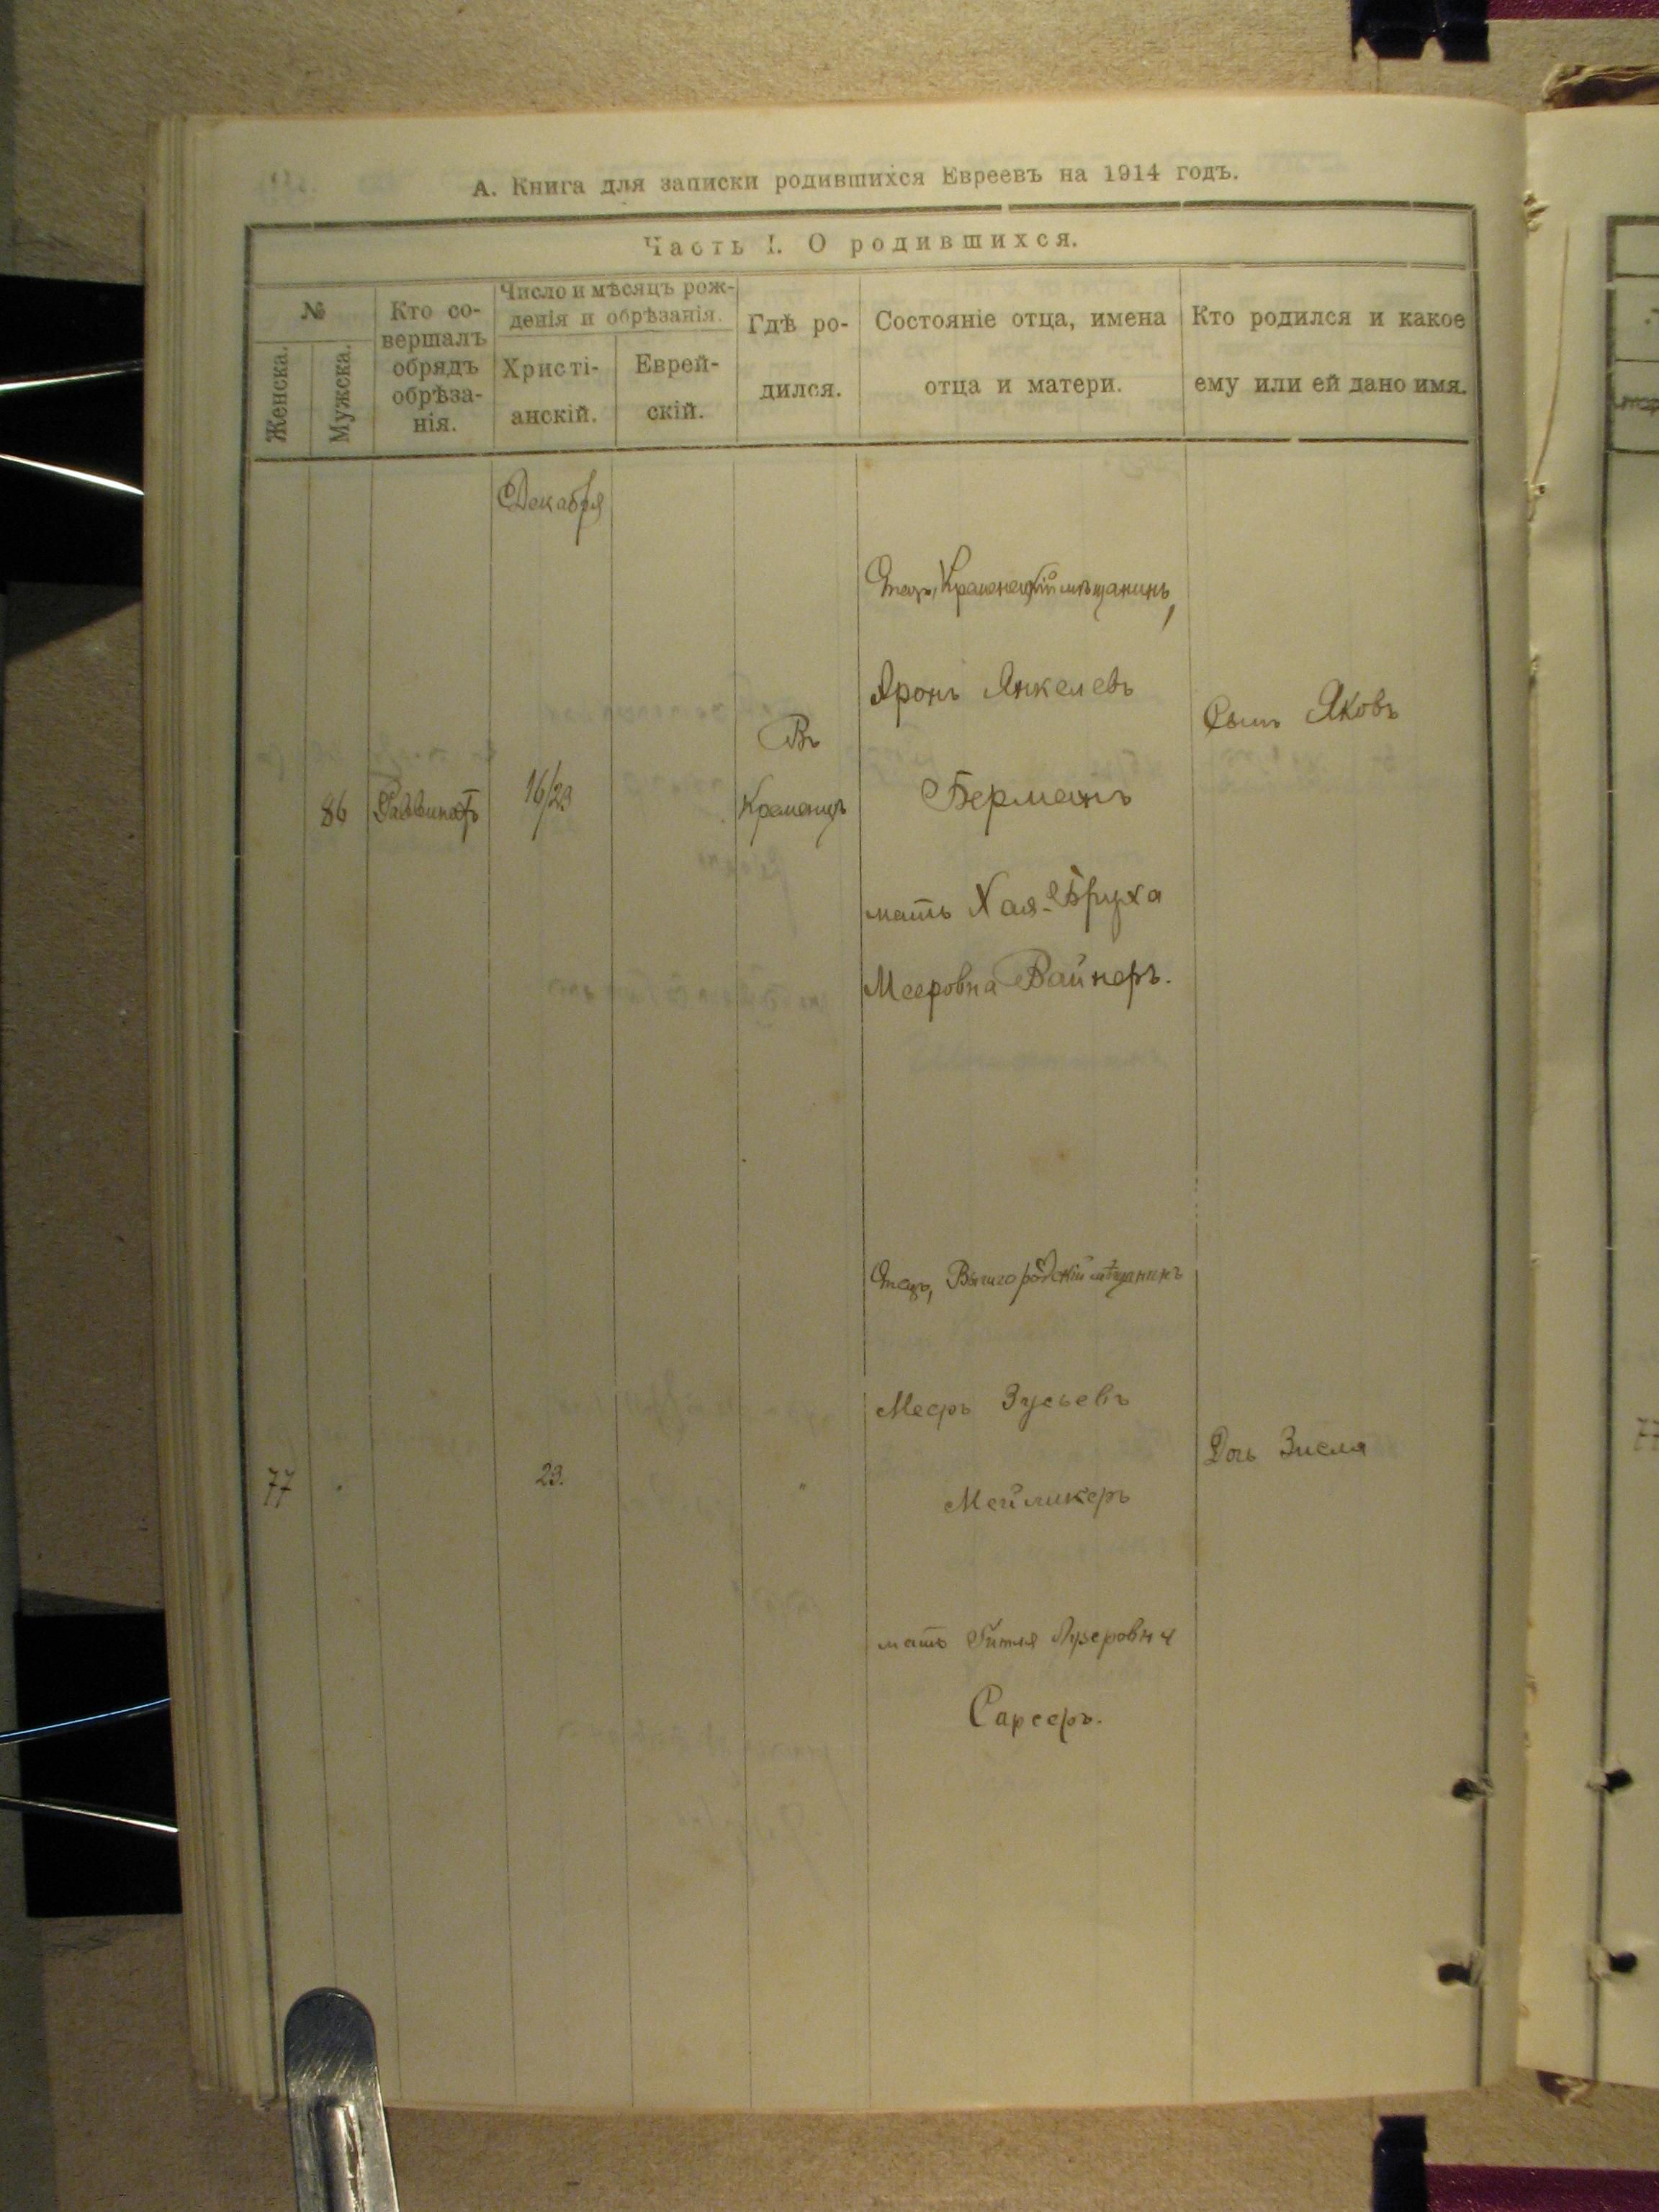 А. Книга для записки родившихся Евреевъ на 1914 годъ.
Часть I. О родившихся.
№
Женска.
Мужска.
Кто со-
вершалъ
обрядъ
обрѣза-
нія.
Число и мѣсяцъ рож-
денія и обрѣзанія.
Христі-
анскій.
Еврей-
скій.
Гдѣ ро-
дился.
Состояніе отца, имена
отца и матери.
Кто родился и какое
ему или ей дано имя.
Декабря
86
16/23
Въ
Кременцѣ
Отецъ, Кременецкій мѣщанинъ,
Аронъ Янкелевъ
Берманъ
мать Хая-Бруха
Мееровна Вайнеръ.
Сынъ Яковъ
77
23.
"
Отецъ, Вышгородскій мѣщанинъ
Мееръ Зусьевъ
Мейликеръ
мать Гитля Лузеровна
Сарсеръ.
Дочь Зисля
77